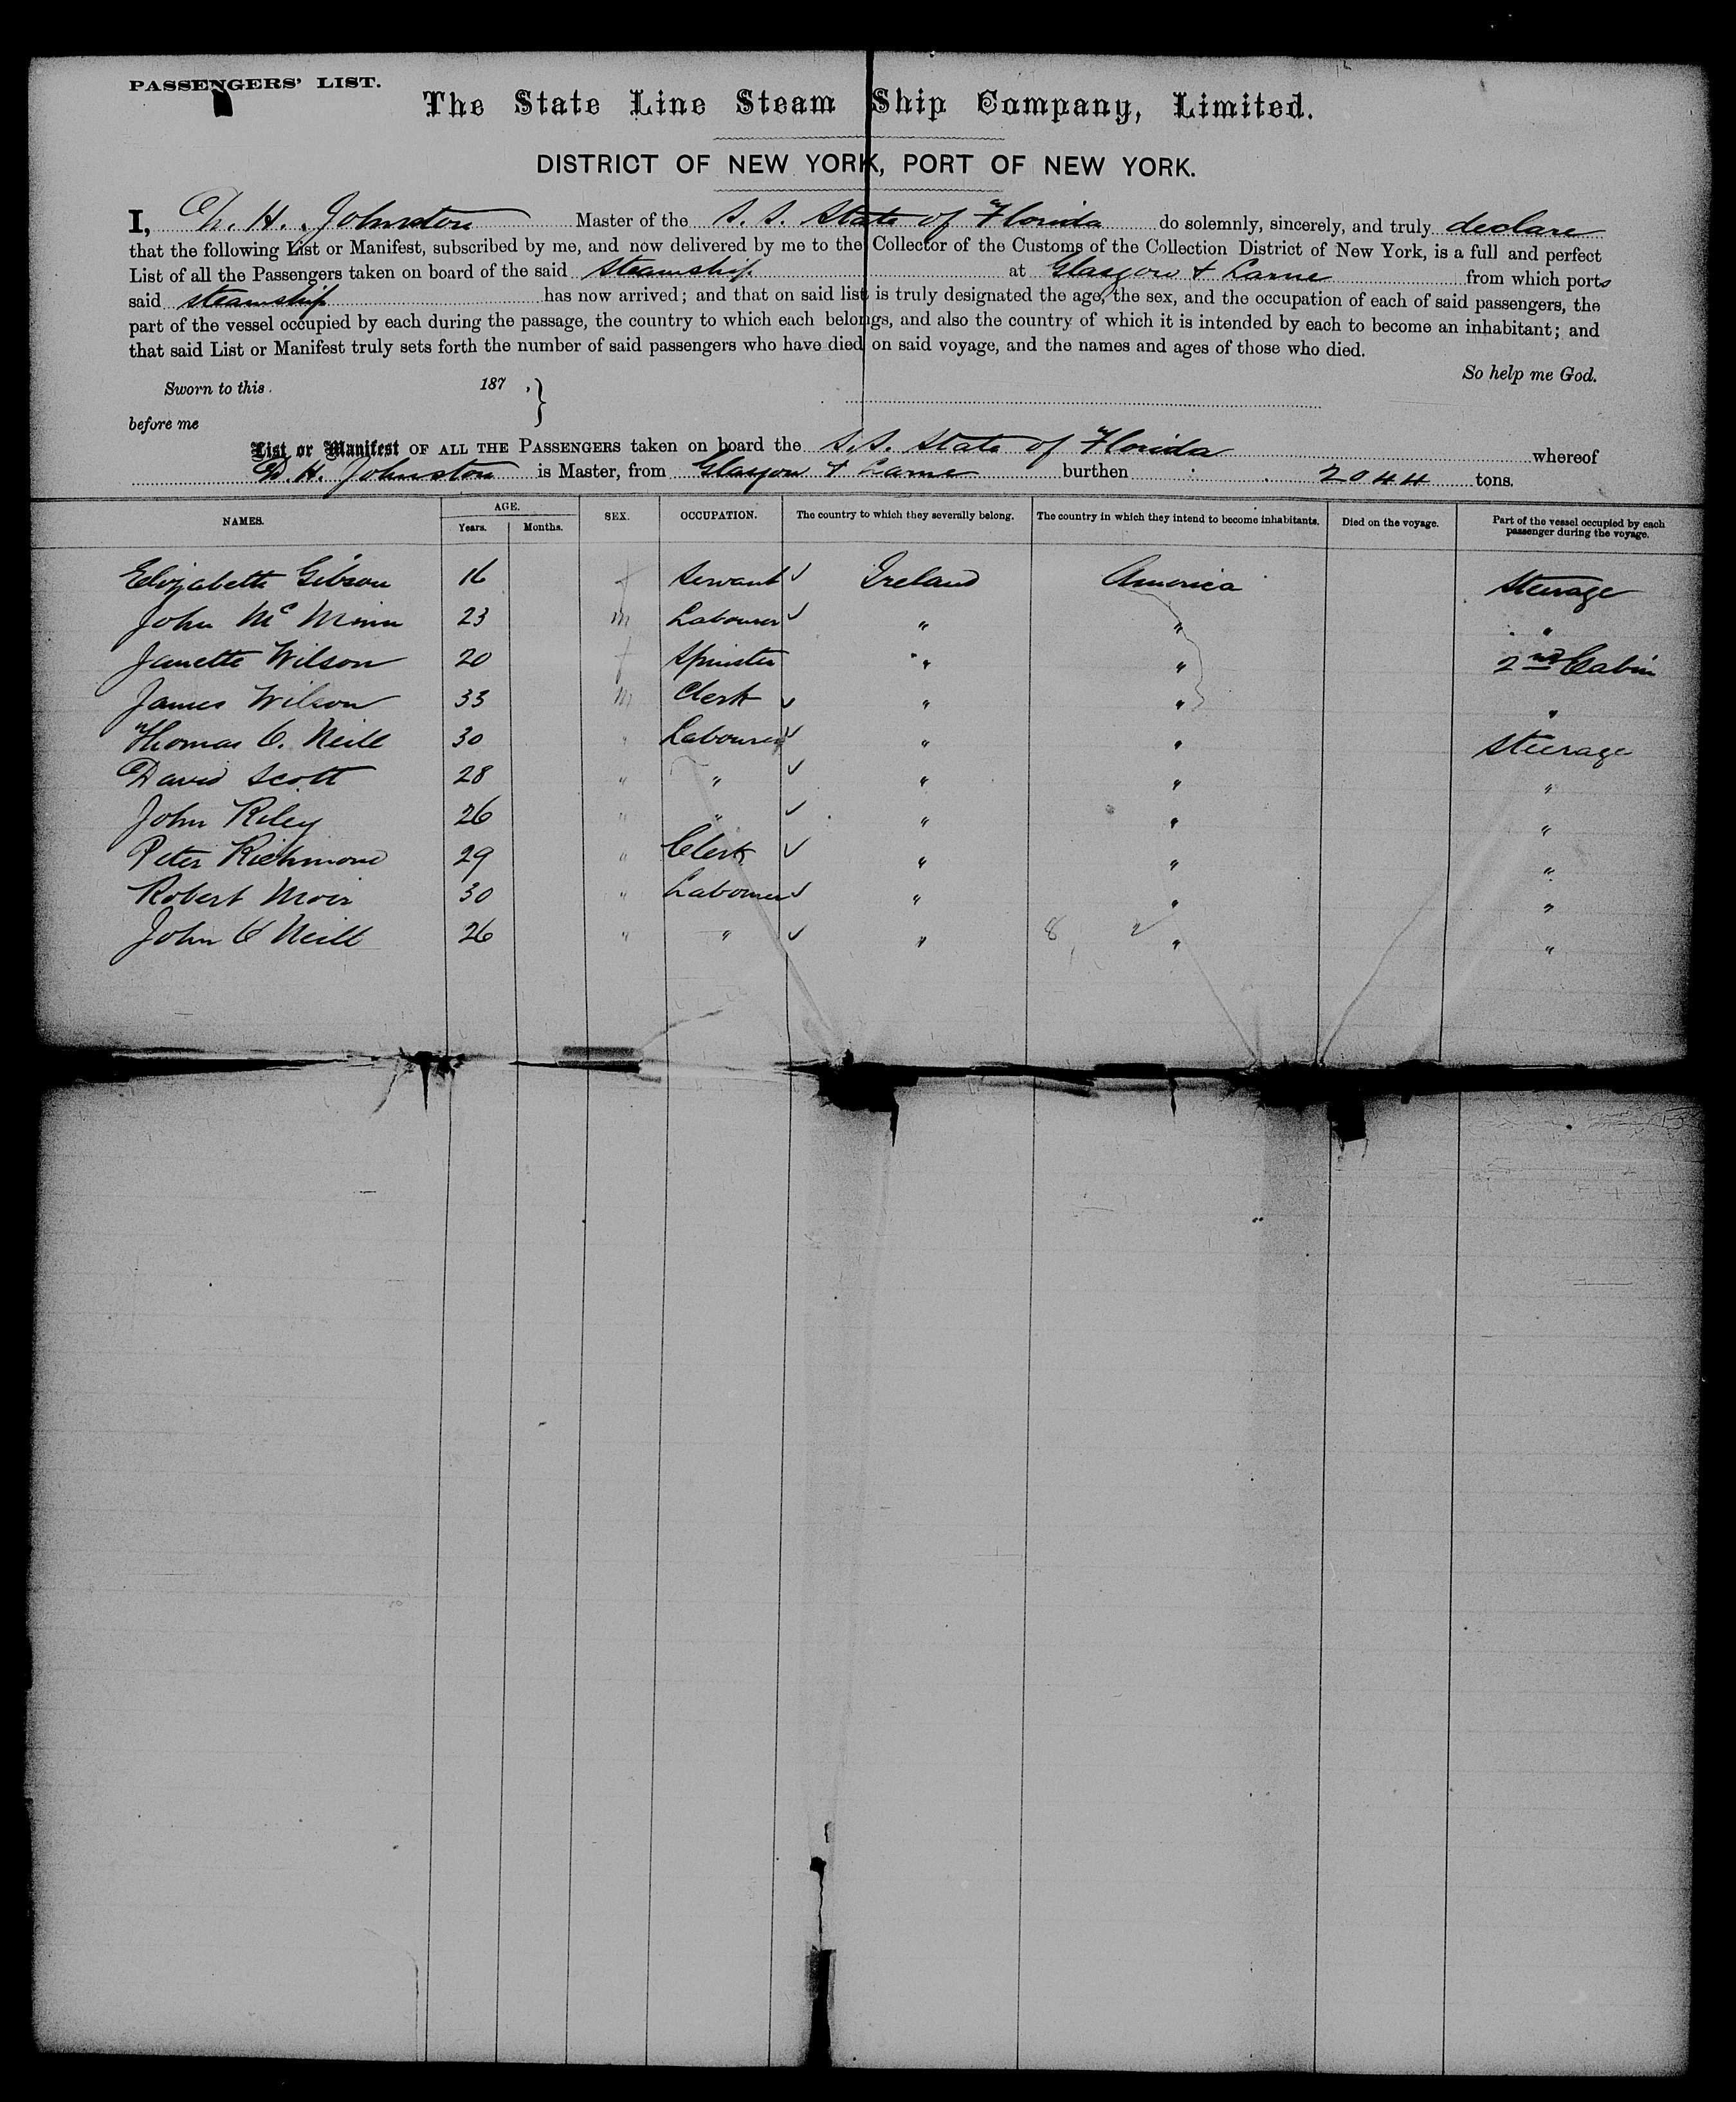 PASSENGERS' LIST.
The State Line Steam Ship Company, Limited.
DISTRICT OF NEW YORK, PORT OF NEW YORK.
I, D. H. Johnston Master of the S. S. State of Florida do solemnly, sincerely, and truly declare
that the following List or Manifest, subscribed by me, and now delivered by me to the Collector of the Customs of the Collection District of New York, is a full and perfect
List of all the Passengers taken on board of the said Steamship at Glasgow & Larne from which ports
said steamship has now arrived; and that on said list is truly designated the age, the sex, and the occupation of each of said passengers, the
part of the vessel occupied by each during the passage, the country to which each belongs, and also the country of which it is intended by each to become an inhabitant; and
that said List or Manifest truly sets forth the number of said passengers who have died on said voyage, and the names and ages of those who died.
So help me God.
Sworn to this 187 .}
before me
List or Manifest OF ALL THE PASSENGERS taken on board the S.S. State of Florida whereof
D. H. Johnston is Master, from Glasgow & Larne burthen 2044 tons.
NAMES. AGE. Years. Months. SEX. OCCUPATION. The country to which they severally belong. The country in which they intend to become inhabitants. Died on the voyage. Part of the vessel occupied by each passenger during the voyage.
Elizabeth Gibson 16 f Servant ✓ Ireland America Steerage
John McMinn 23 m Labourer ✓ " " "
Janette Wilson 20 f Spinster " " 2nd Cabin
James Wilson 33 m Clerk ✓ " " "
Thomas O. Neill 30 " Labourer ✓ " " Steerage
David Scott 28 " " ✓ " " "
John Riley 26 " " ✓ " " "
Peter Richmond 29 " Clerk ✓ " " "
Robert Moir 30 " Labourer ✓ " " "
John O Neill 26 " " ✓ " 8 " "